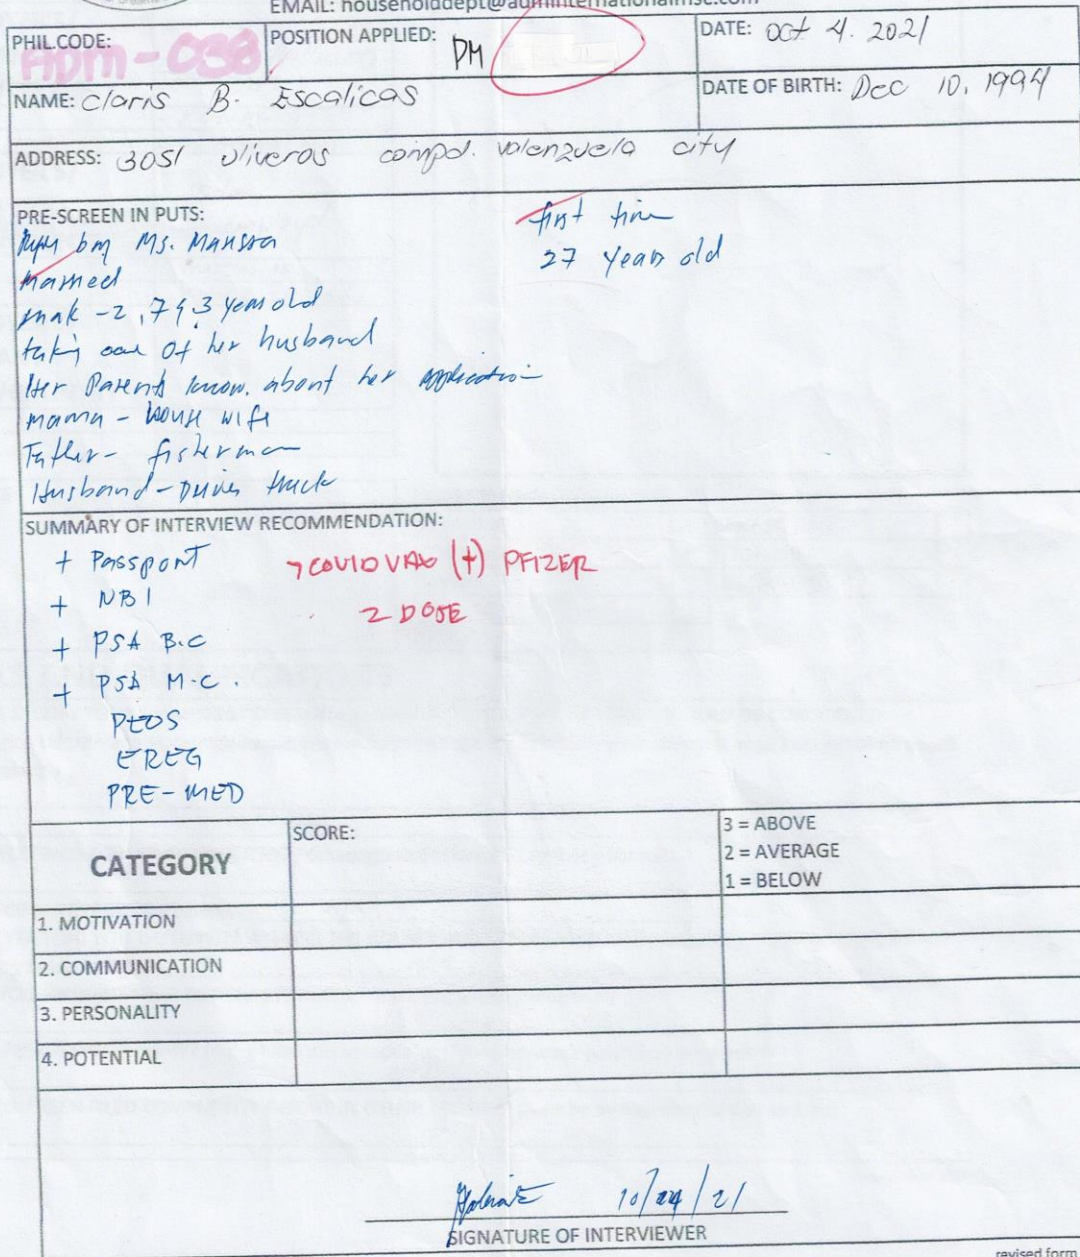 EMAIL: householddept@adminternationalmsc.com
PHIL.CODE: ADM-038
POSITION APPLIED: DM
DATE: Oct 4. 2021
NAME: Claris B. Escalicas
DATE OF BIRTH: Dec 10, 1994
ADDRESS: 3051 oliveros compd. valenzuela city
PRE-SCREEN IN PUTS:
by Ms.
first time
27 years old
married
-2, 7 & 3 years old
taking care of her husband
Her Parents know. about her application
mama - house wife
Father - fisherman
Husband - Driver truck
SUMMARY OF INTERVIEW RECOMMENDATION:
+ Passport
+ NBI
+ PSA B.C
+ PSA M.C.
PEOS
EREG
PRE-MED
COVID VAC (+) PFIZER
2 DOSE
CATEGORY
SCORE:
3 = ABOVE
2 = AVERAGE
1 = BELOW
1. MOTIVATION
2. COMMUNICATION
3. PERSONALITY
4. POTENTIAL
SIGNATURE OF INTERVIEWER
revised form